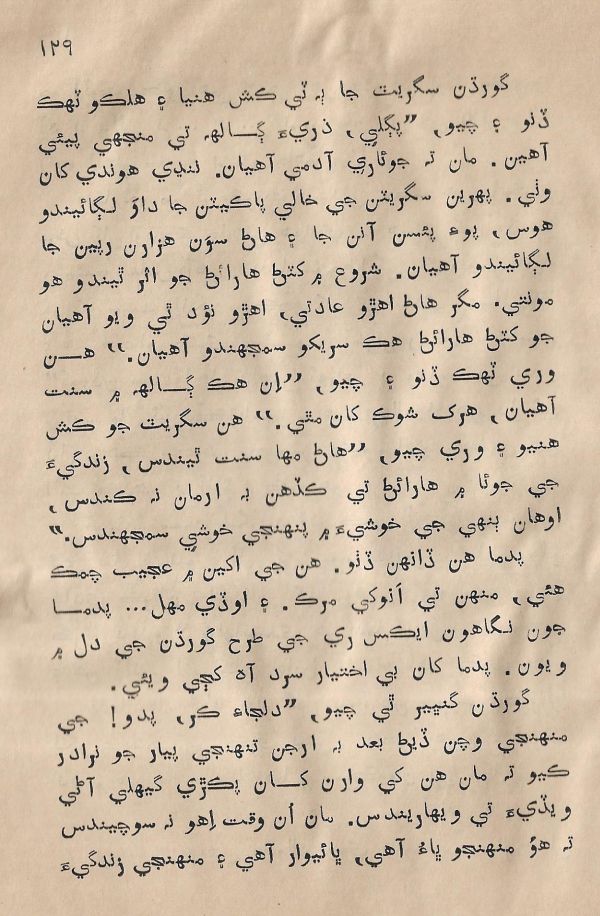 ۱۲۹
گورڌن سگريٽ جا ٻه ٽي ڪش هنيا ۽ هلڪو ٽهڪ
ڏنو ۽ چيو، ”پڳلي، ذريءَ ڳـالهہ تي منجهي پيئي
آهين. مان تہ جوئاري آدمي آهيان. ننڍي هوندي کان
وٺي. پهرين سگريٽن جي خالي پاڪيٽن جا داوَ لڳائيندو
هوس، پوءِ پئسن آنن جا ۽ هاڻ سوَن هزارن رپين جا
لڳائيندو آهيان. شروع ۾ کٽڻ هارائڻ جو اثر ٿيندو هو
مونتي. مگر هاڻ اهڙو عادتي، اهڙو نؤڊ ٿي ويو آهيان
جو کٽڻ هارائڻ هڪ سريکو سمجهندو آهيان.“ هــن
وري ٽهڪ ڏنو ۽ چيو، ”اِن هڪ ڳــالهہ ۾ سنت
آهيان، هرک شوڪ کان مٿي.“ هن سگريٽ جو ڪش
هنيو ۽ وري چيو، ”هاڻ مها سنت ٿيندس، زندگيءَ
جي جوئا ۾ هارائڻ تي ڪڏهن بہ ارمان نہ ڪندس،
اوهان ٻنهي جي خوشيءَ ۾ پنهنجي خوشي سمجهندس.“
پدما هن ڏانهن ڏٺو. هن جي اکين ۾ عجيب چمڪ
هئي، منهن تي اَنوکي مرڪ. ۽ اوڏي مهل... پدمــا
جون نگاهون ايڪس ري جي طرح گورڌن جي دل ۾
ويون. پدما کان بي اختيار سرد آه کڄي ويئي.
گورڌن گنڀير ٿي چيو، ”دلڄاءِ ڪر، پدو! جي
منهنجي وچن ڏيڻ بعد بہ ارجن تنهنجي پيار جو نرادر
ڪيو تہ مان هن کي وارن کــان پڪڙي گيهلي آڻي
ويڏيءَ تي ويهاريندس. مان اُن وقت اِهو نہ سوچيندس
تہ هوُ منهنجو ڀاءُ آهي، ڀائيوار آهي ۽ منهنجي زندگيءَ